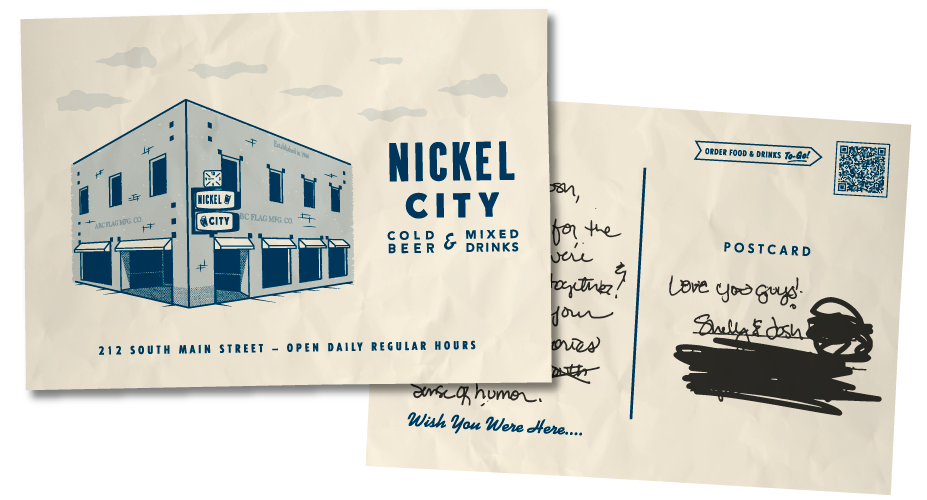 Established in 1908
ABC FLAG MFG. CO.
ABC FLAG MFG. CO.
NICKEL
CITY
NICKEL
CITY
COLD BEER & MIXED DRINKS
212 SOUTH MAIN STREET – OPEN DAILY REGULAR HOURS
ORDER FOOD & DRINKS To-Go!
POSTCARD
osh,
for the
we're
together!
your
ories
sense of humor.
Wish You Were Here....
Love you guys!
Shelly & Josh